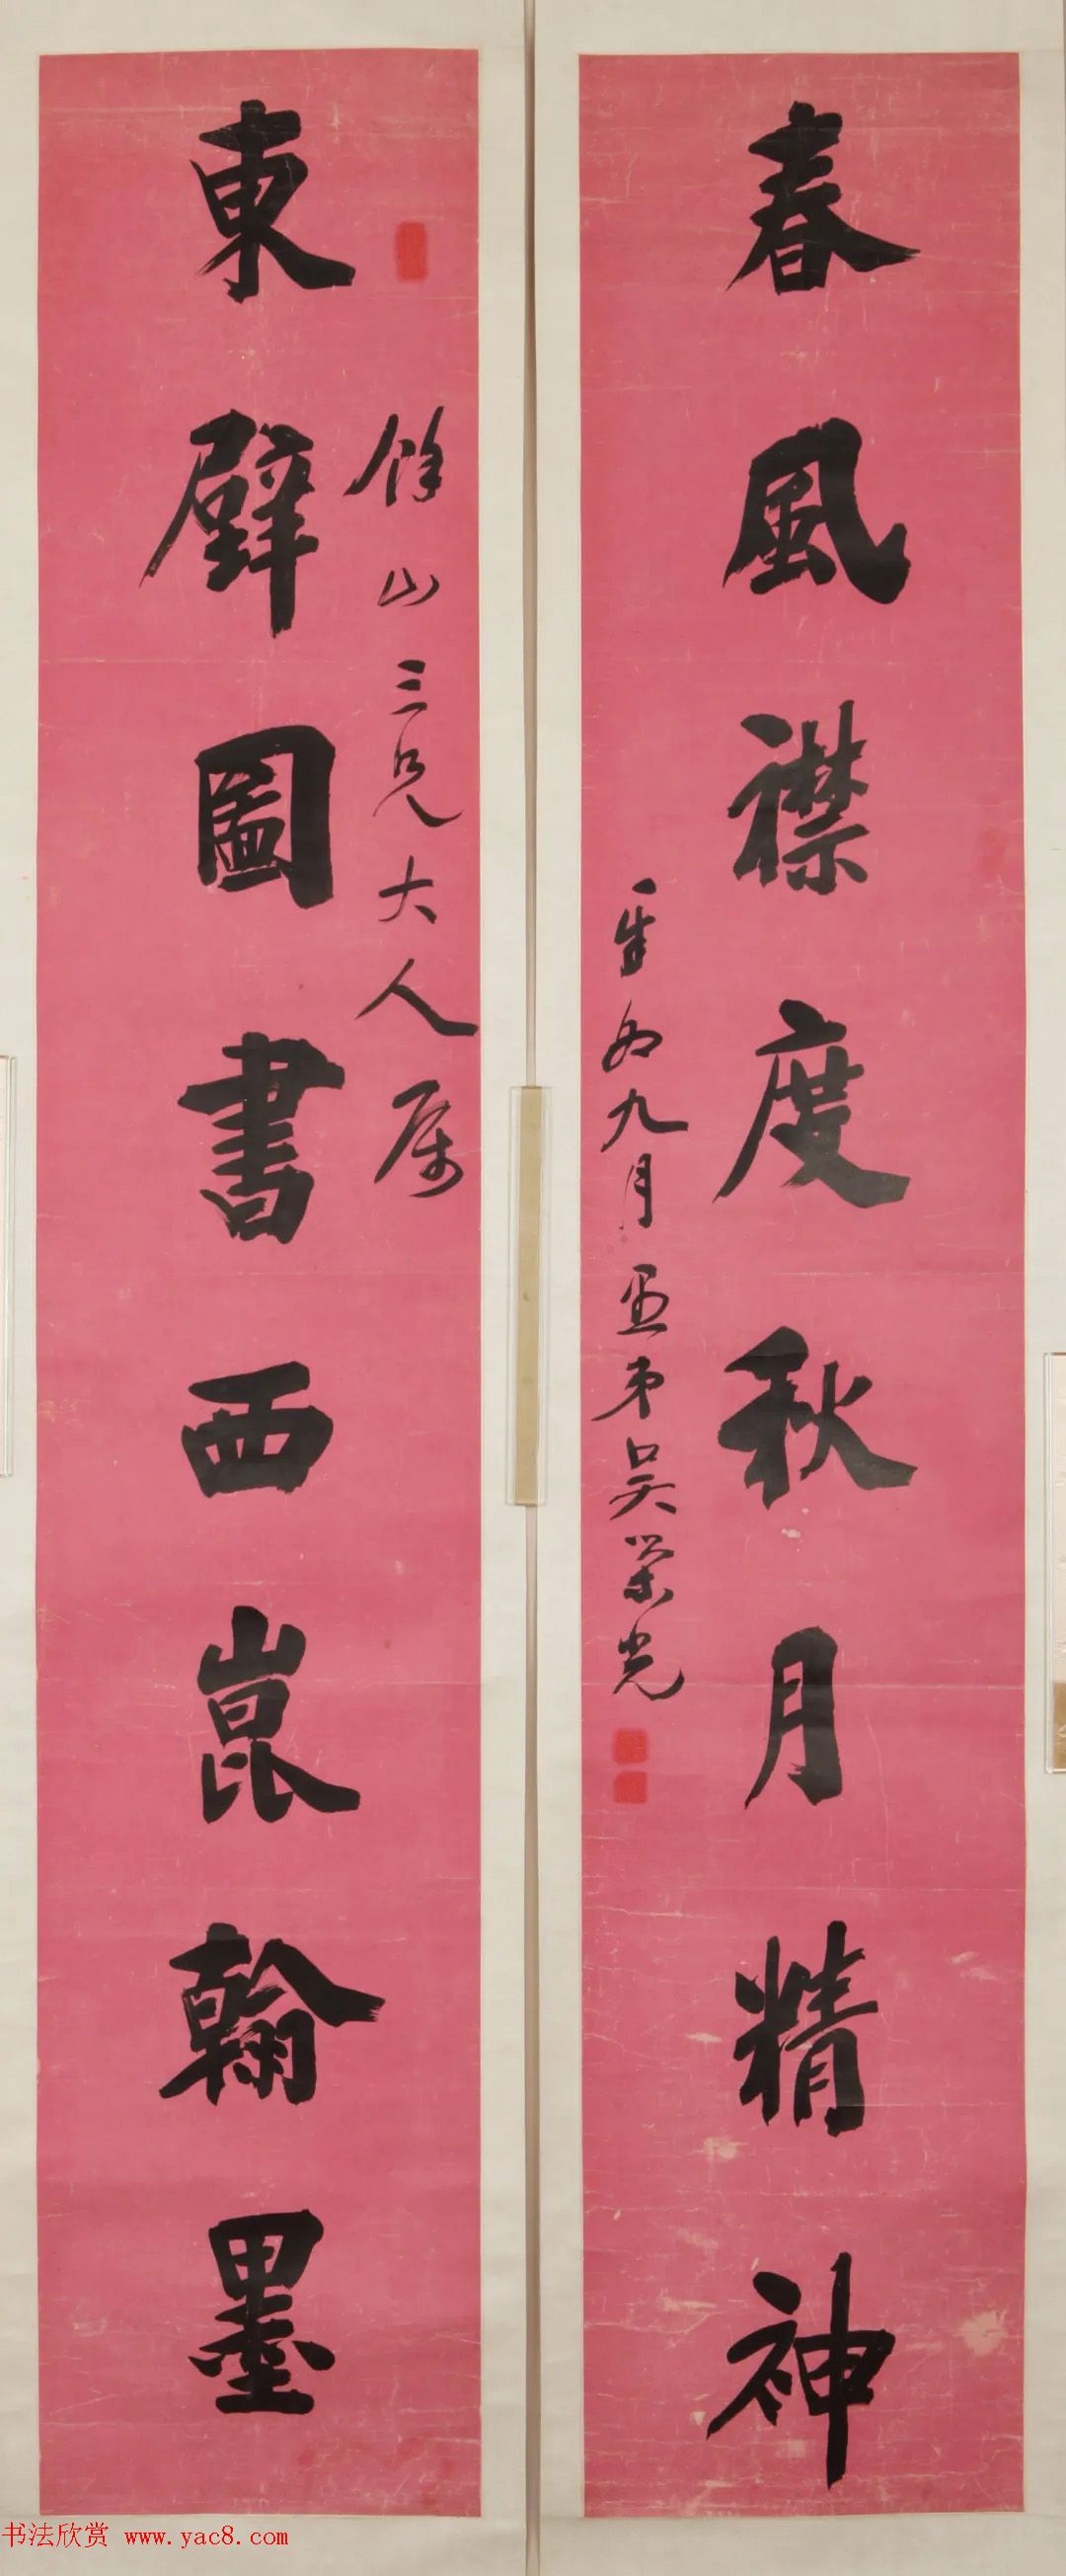 東壁圖書西崑翰墨
餘山三兄大人屬
春風襟度秋月精神
辛卯九月愚弟吳榮光
书法欣赏 www.yac8.com